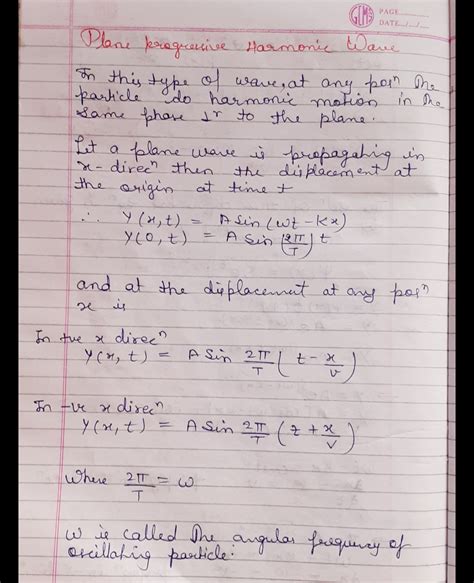 GCMS PAGE
DATE
Plane progressive Harmonic Wave
In this type of wave, at any posⁿ the
particle do harmonic motion in the
same phase ⊥r to the plane.
Let a plane wave is propagating in
x-direcⁿ then the displacement at
the origin at time t
∴ Y(x,t) = A sin(ωt - Kx)
Y(0,t) = A sin (2π/T) t
and at the displacement at any posⁿ
x is
In +ve x direcⁿ
Y(x,t) = A Sin 2π/T (t - x/v)
In -ve x direcⁿ
Y(x,t) = A Sin 2π/T (t + x/v)
Where 2π/T = ω
ω is called the angular frequency of
oscillating particle.